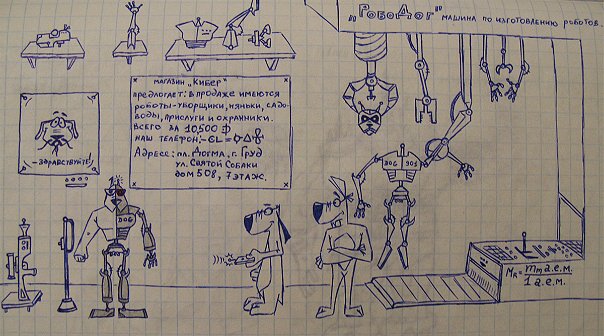 „РобоДог" машина по изготовлению роботов.
магазин „Кибер"
предлогает: в продаже имеются
роботы-уборщики, няньки, садо-
воды, прислуги и охранники.
Всего за 10,500
наш телефон:
Адресс: пл. Догма, г. Груд
ул. Святой Собаки
дом 508, 7 этаж.
– Здравствуйте!
DOG
DOG 903
Mr = mm а.е.м.
1 а.е.м.